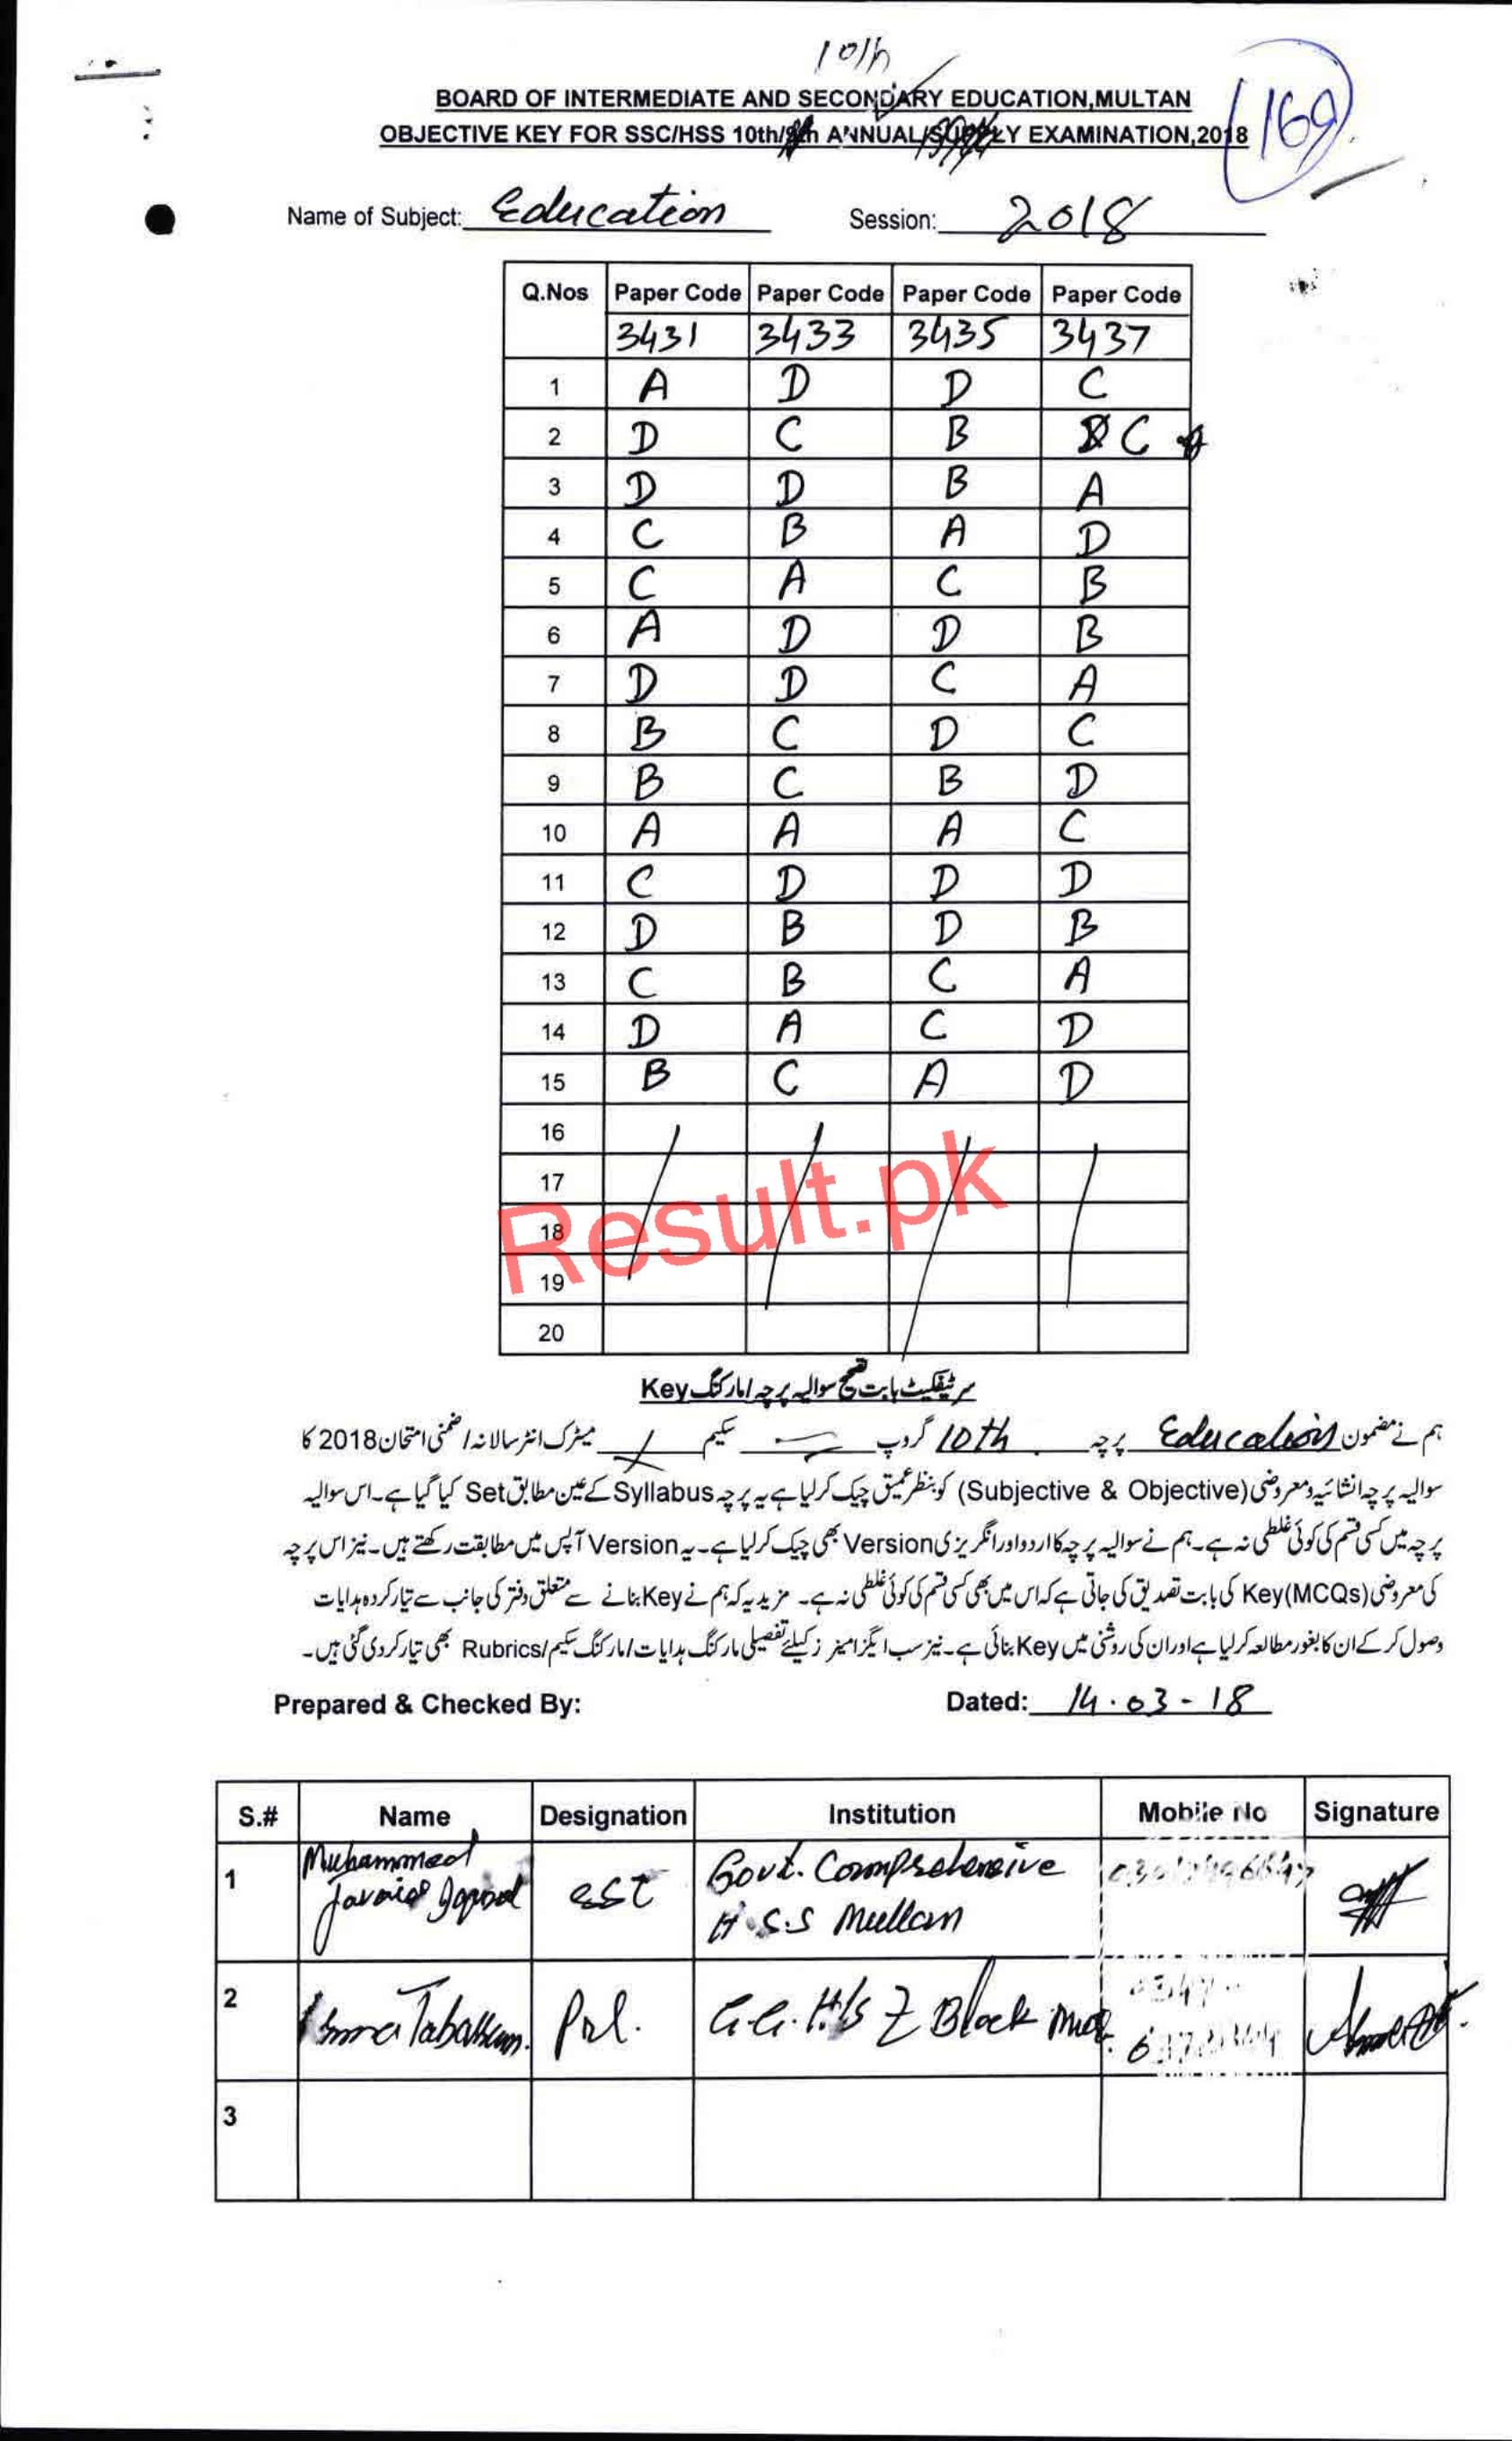 10th
BOARD OF INTERMEDIATE AND SECONDARY EDUCATION,MULTAN
OBJECTIVE KEY FOR SSC/HSS 10th/ ANNUAL/ EXAMINATION,2018
169
Name of Subject: Education Session: 2018
Q.Nos Paper Code Paper Code Paper Code Paper Code
3431 3433 3435 3437
1 A D D C
2 D C B C
3 D D B A
4 C B A D
5 C A C B
6 A D D B
7 D D C A
8 B C D C
9 B C B D
10 A A A C
11 C D D D
12 D B D B
13 C B C A
14 D A C D
15 B C A D
16
17
18
19
20
Result.pk
سرٹیفکیٹ بابت تصحیح سوالیہ پرچہ/مارکنگ Key
ہم نے مضمون Education پرچہ 10th گروپ سکیم میٹرک/انٹر سالانہ/ضمنی امتحان 2018 کا
سوالیہ پرچہ انشائیہ ومعروضی (Subjective & Objective) کو بنظر عمیق چیک کرلیا ہے یہ پرچہ Syllabus کے عین مطابق Set کیا گیا ہے۔ اس سوالیہ
پرچہ میں کسی قسم کی کوئی غلطی نہ ہے۔ ہم نے سوالیہ پرچہ کا اردو اور انگریزی Version بھی چیک کرلیا ہے۔ یہ Version آپس میں مطابقت رکھتے ہیں۔ نیز اس پرچہ
کی معروضی Key(MCQs) کی بابت تصدیق کی جاتی ہے کہ اس میں بھی کسی قسم کی کوئی غلطی نہ ہے۔ مزید یہ کہ ہم نے Key بنانے سے متعلق دفتر کی جانب سے تیار کردہ ہدایات
وصول کر کے ان کا بغور مطالعہ کرلیا ہے اور ان کی روشنی میں Key بنائی ہے۔ نیز سب ایگزامینرز کیلئے تفصیلی مارکنگ ہدایات/مارکنگ سکیم/Rubrics بھی تیار کردی گئی ہیں۔
Prepared & Checked By: Dated: 14.03-18
S.# Name Designation Institution Mobile No Signature
1 Muhammad Javaid SST Govt. Comprehensive
H.S.S Multan
2 G.G. H/S Z Block
3